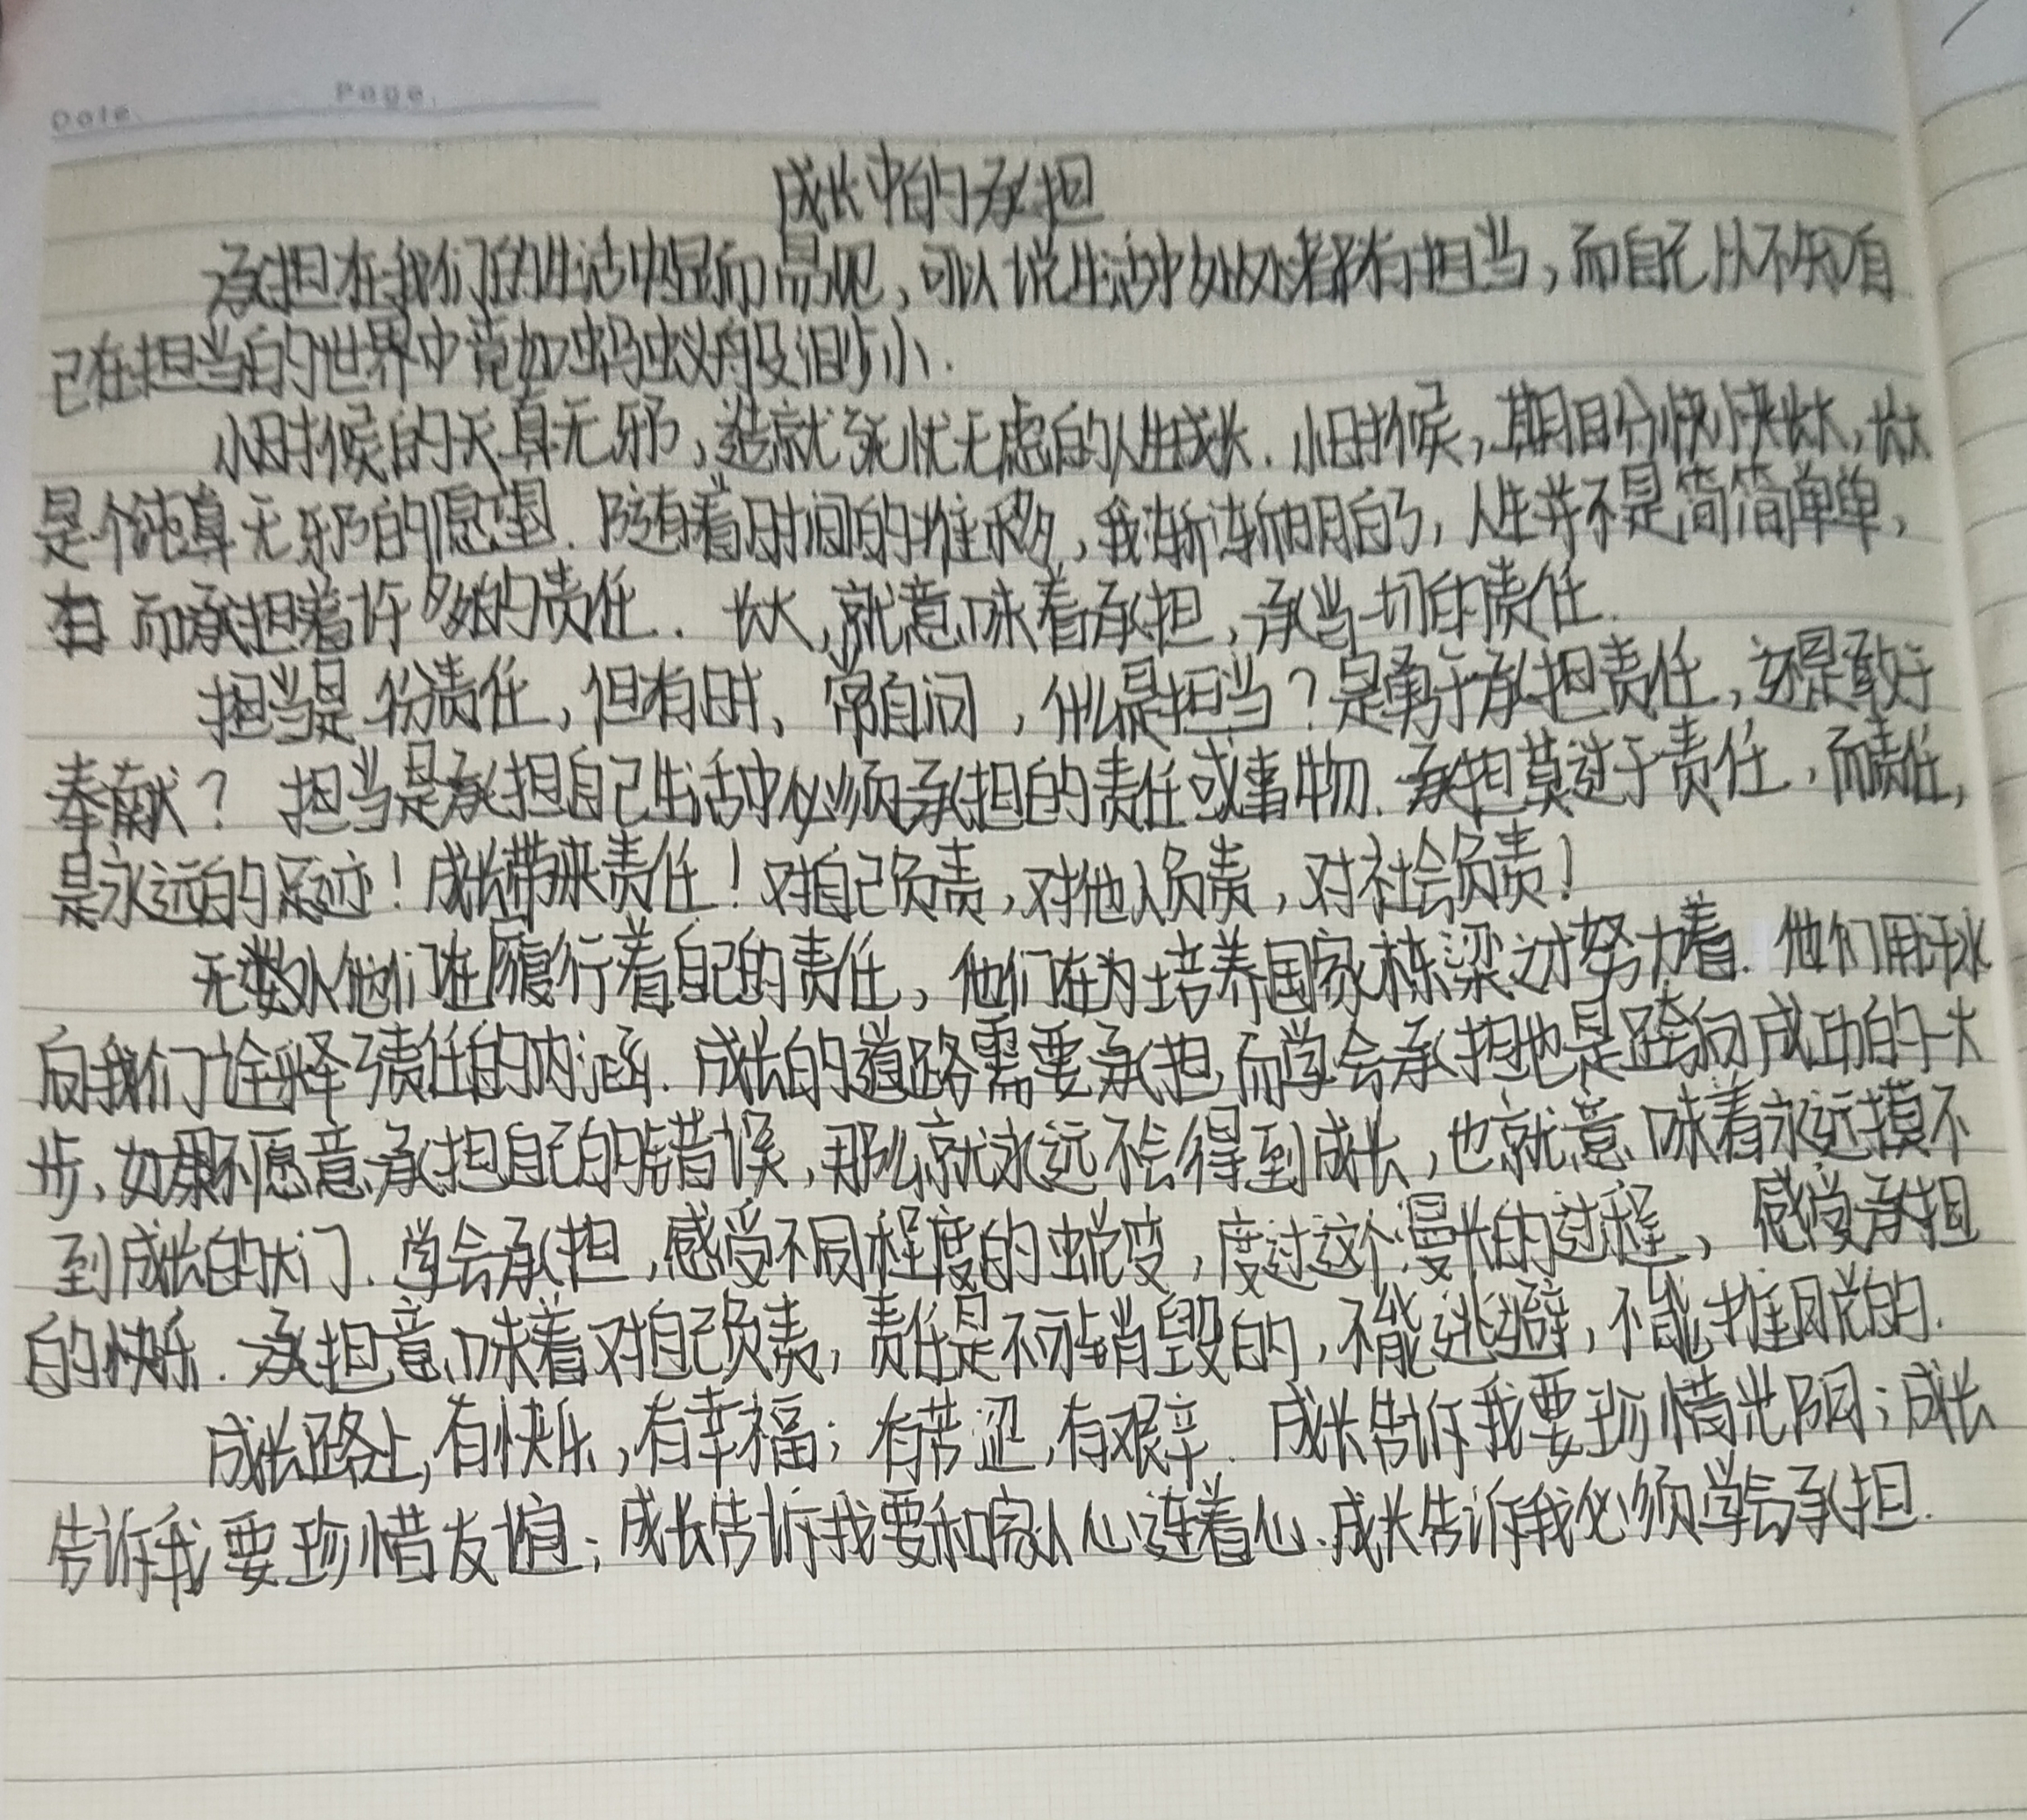 Date. Page.
成长中的承担
承担在我们的生活中显而易见,可以说生活中处处都有担当,而自己从不知自
己在担当的世界中竟如蚂蚁般渺小.
小时候的天真无邪,造就了无忧无虑的人生成长.小时候,期盼快快长大,长大
是个纯真无邪的愿望.随着时间的推移,我渐渐明白了,人生并不是简简单单,
而承担着许多的责任.长大,就意味着承担,承当一切的责任.
担当是一份责任,但有时、常自问,什么是担当?是勇于承担责任,还是敢于
奉献?担当是承担自己生活中必须承担的责任或事物.承担莫过于责任,而责任,
是永远的足迹!成长带来责任!对自己负责,对他人负责,对社会负责!
无数人他们在履行着自己的责任,他们在为培养国家栋梁之才努力着.他们用汗水
向我们诠释了责任的内涵.成长的道路需要承担,而学会承担也是跨向成功的一大
步,如果不愿意承担自己的错误,那么就永远不会得到成长,也就意味着永远摸不
到成长的大门.学会承担,感受不同程度的蜕变,度过这个漫长的过程、感受承担
的快乐.承担意味着对自己负责,责任是不可销毁的,不能逃避,不能推脱的.
成长路上,有快乐,有幸福;有苦涩,有艰辛.成长告诉我要珍惜光阴;成长
告诉我要珍惜友谊;成长告诉我要和家人心连着心.成长告诉我必须学会承担.